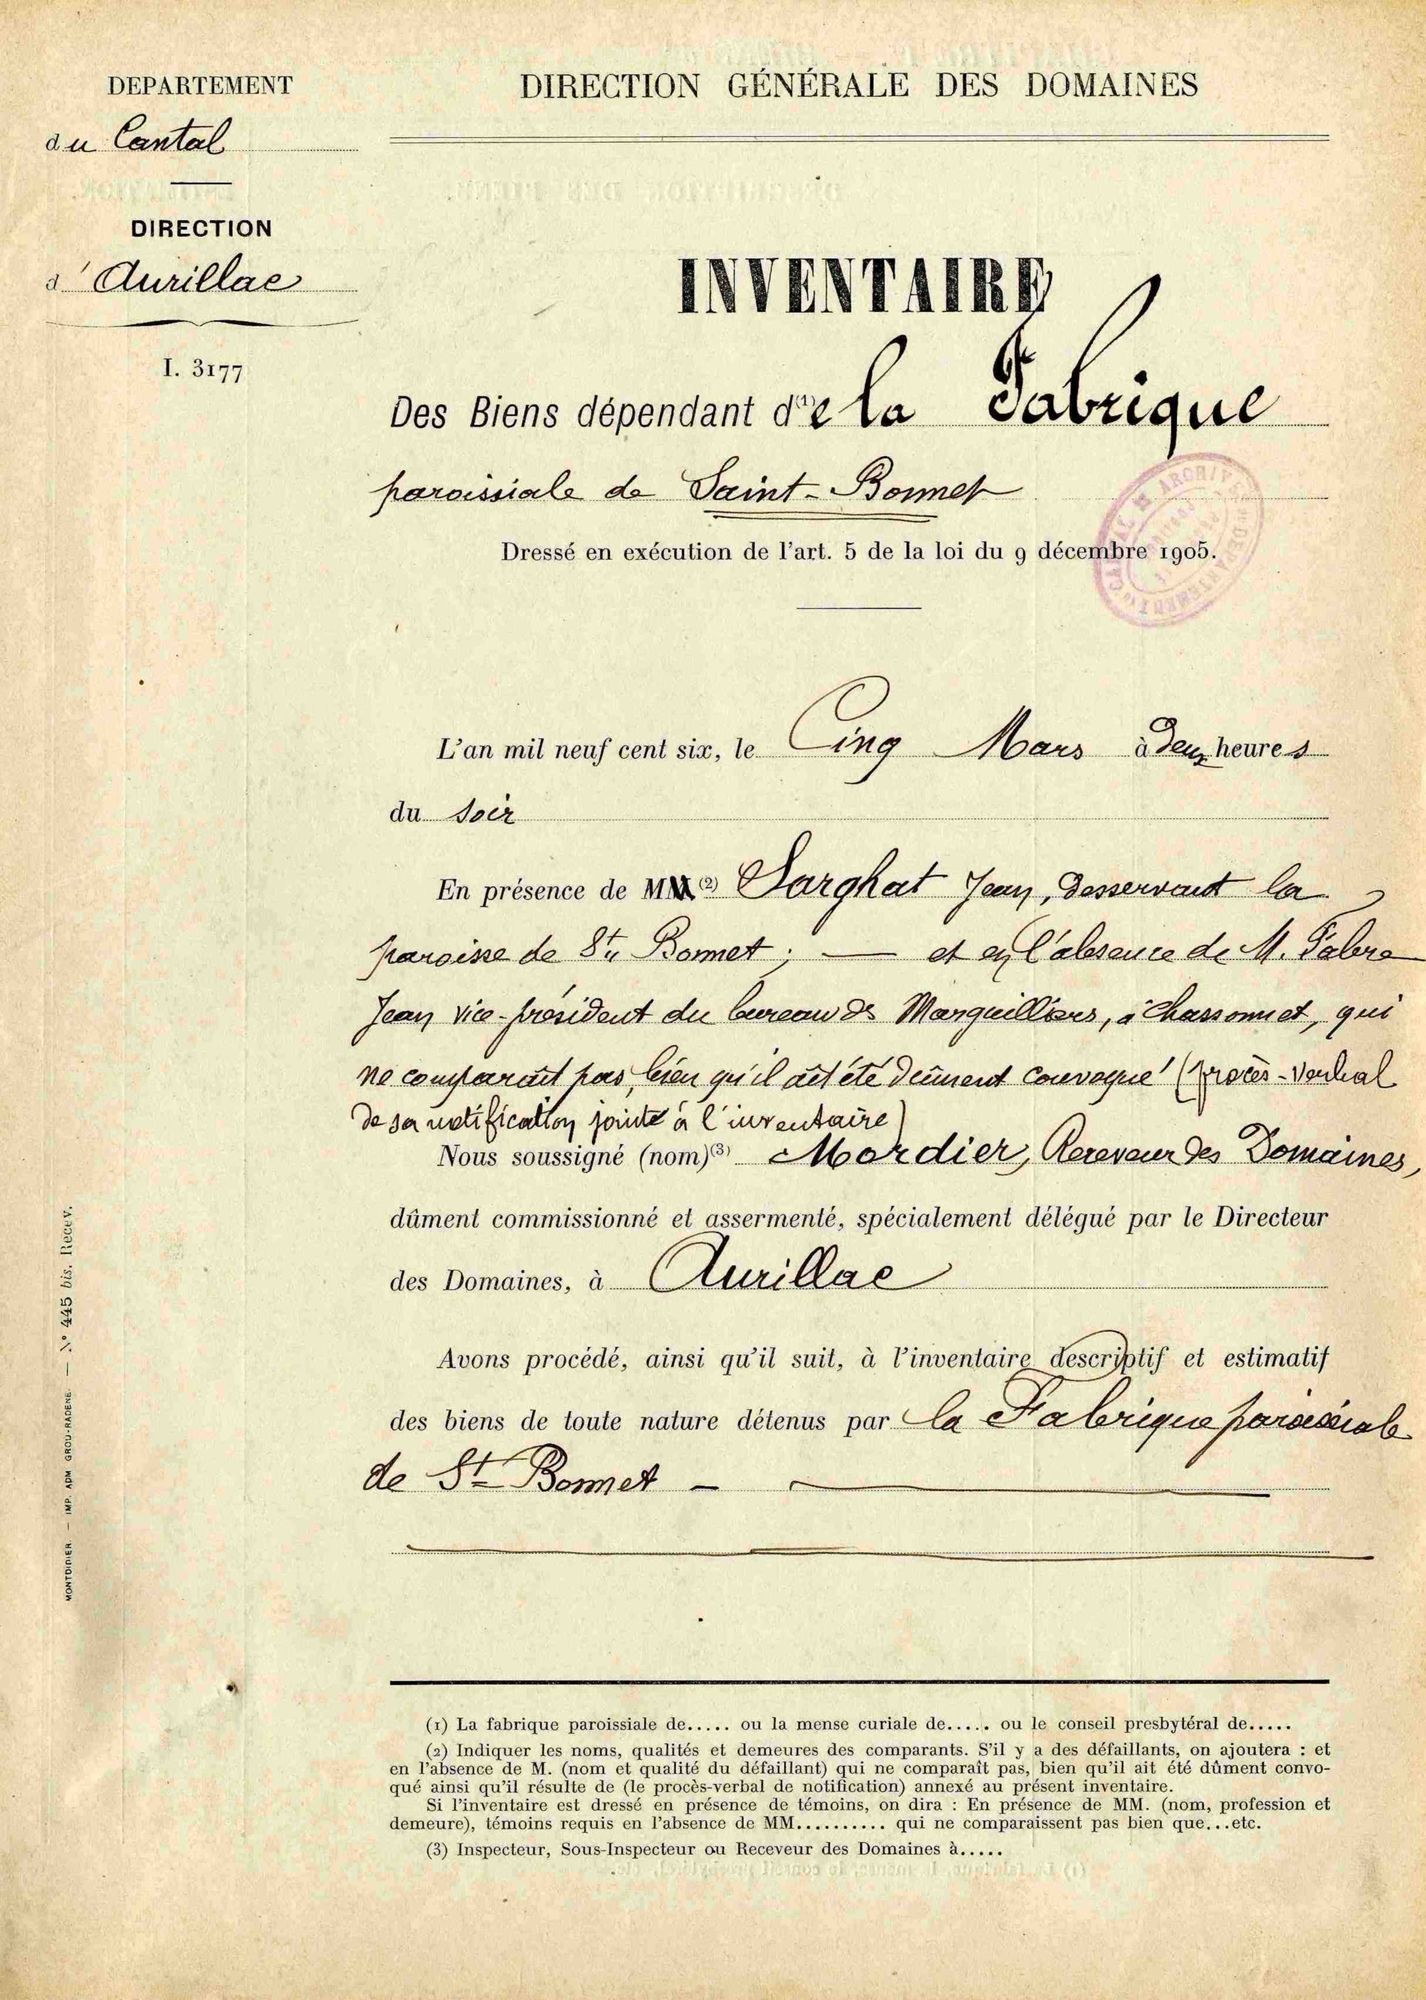 DEPARTEMENT
du Cantal
DIRECTION
d'Aurillac
I. 3177
DIRECTION GÉNÉRALE DES DOMAINES
INVENTAIRE
Des Biens dépendant d(1)e la Fabrique
paroissiale de Saint-Bonnet
Dressé en exécution de l'art. 5 de la loi du 9 décembre 1905.
L'an mil neuf cent six, le Cinq Mars à deux heures
du soir
En présence de MM (2) Sarghat Jean, desservant la
paroisse de St Bonnet ; — et en l'absence de M. Fabre
Jean vice-président du bureau des Marguilliers, à Chassonnet, qui
ne comparait pas, bien qu'il ait été dûment convoqué (procès-verbal
de sa notification jointe à l'inventaire)
Nous soussigné (nom)(3) Mordier, Receveur des Domaines,
dûment commissionné et assermenté, spécialement délégué par le Directeur
des Domaines, à Aurillac
Avons procédé, ainsi qu'il suit, à l'inventaire descriptif et estimatif
des biens de toute nature détenus par la Fabrique paroissiale
de St Bonnet —
(1) La fabrique paroissiale de..... ou la mense curiale de..... ou le conseil presbytéral de.....
(2) Indiquer les noms, qualités et demeures des comparants. S'il y a des défaillants, on ajoutera : et
en l'absence de M. (nom et qualité du défaillant) qui ne comparaît pas, bien qu'il ait été dûment convo-
qué ainsi qu'il résulte de (le procès-verbal de notification) annexé au présent inventaire.
Si l'inventaire est dressé en présence de témoins, on dira : En présence de MM. (nom, profession et
demeure), témoins requis en l'absence de MM.......... qui ne comparaissent pas bien que...etc.
(3) Inspecteur, Sous-Inspecteur ou Receveur des Domaines à.....
MONTDIDIER. — IMP. ADM GROU-RADENE. — N° 445 bis. Recev.
ARCHIVES DEPARTEMENT CANTAL